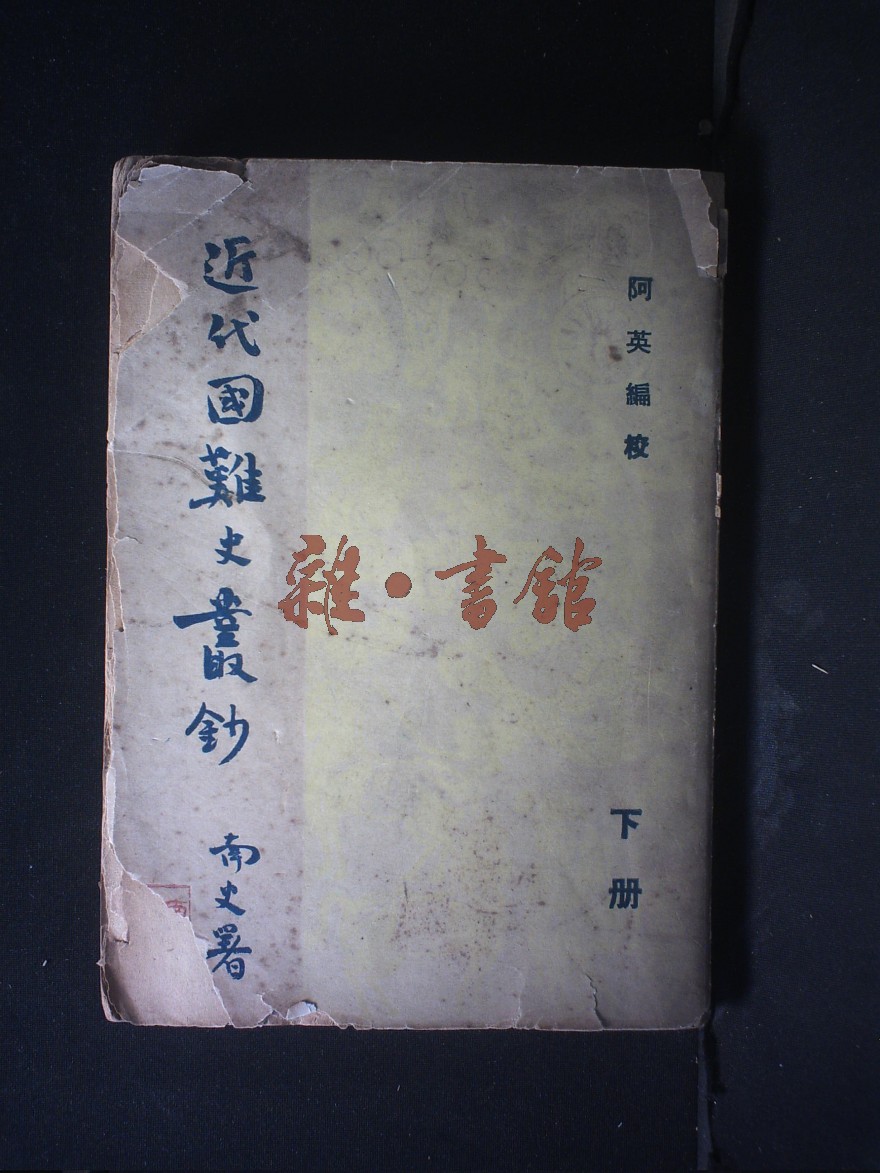 阿英編校
下册
近代國難史叢鈔
南史署
雜·書館